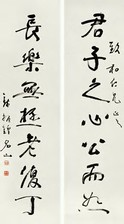 君子之心公而恕
致和仁兄正之
長樂無極老復丁
名山